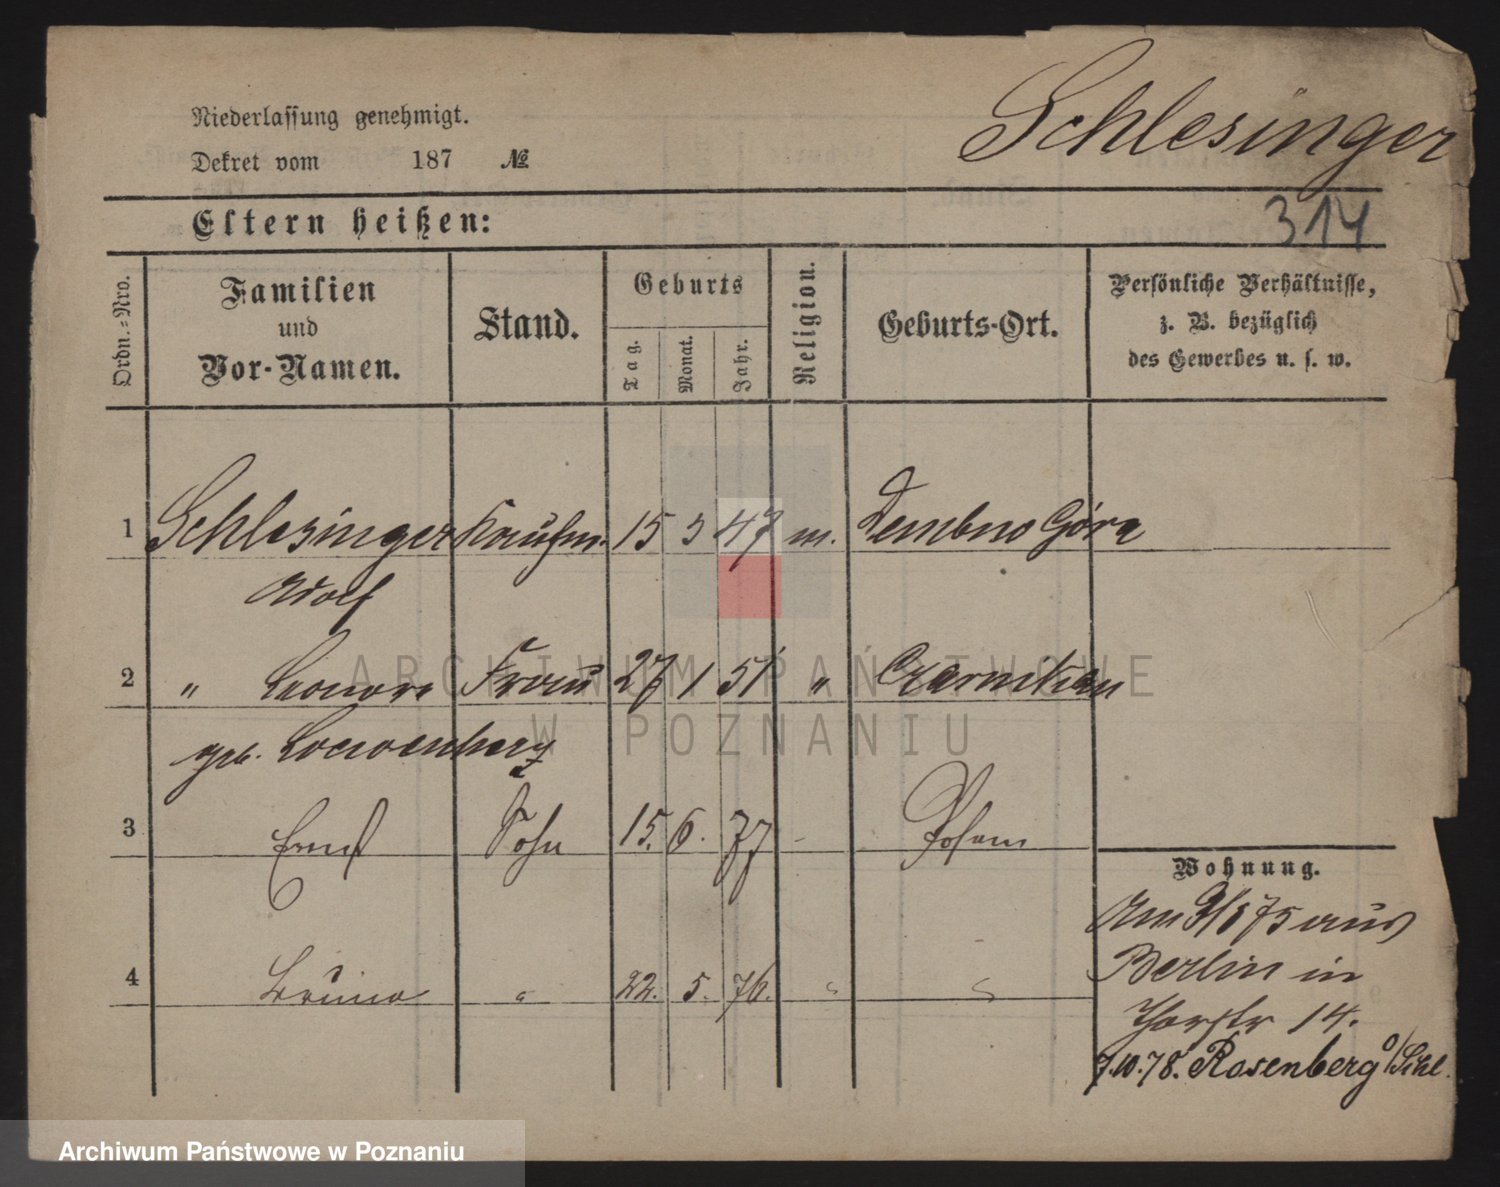 Niederlassung genehmigt.
Schlesinger
Dekret vom 187 №
314
Eltern heißen:
Ordn.=Nro.
Familien
und
Vor-Namen.
Stand.
Geburts
Tag.
Monat.
Jahr.
Religion.
Geburts-Ort.
Persönliche Verhältnisse,
z. B. bezüglich
des Gewerbes u. s. w.
1 Schlesinger Kaufm. 15 3 47 m. Dembno Góra
Adolf
2 " Leonore Frau 27 1 51 " Czarnikau
geb. Loewenherz
3 Ernst Sohn 15. 6. 77 - Posen
4 Bruno " 22. 5. 76. " "
Wohnung.
Am 9/8 75 aus
Berlin in
Thorstr 14.
7.10.78. Rosenberg o/Schl.
ARCHIWUM PAŃSTWOWE
W POZNANIU
Archiwum Państwowe w Poznaniu